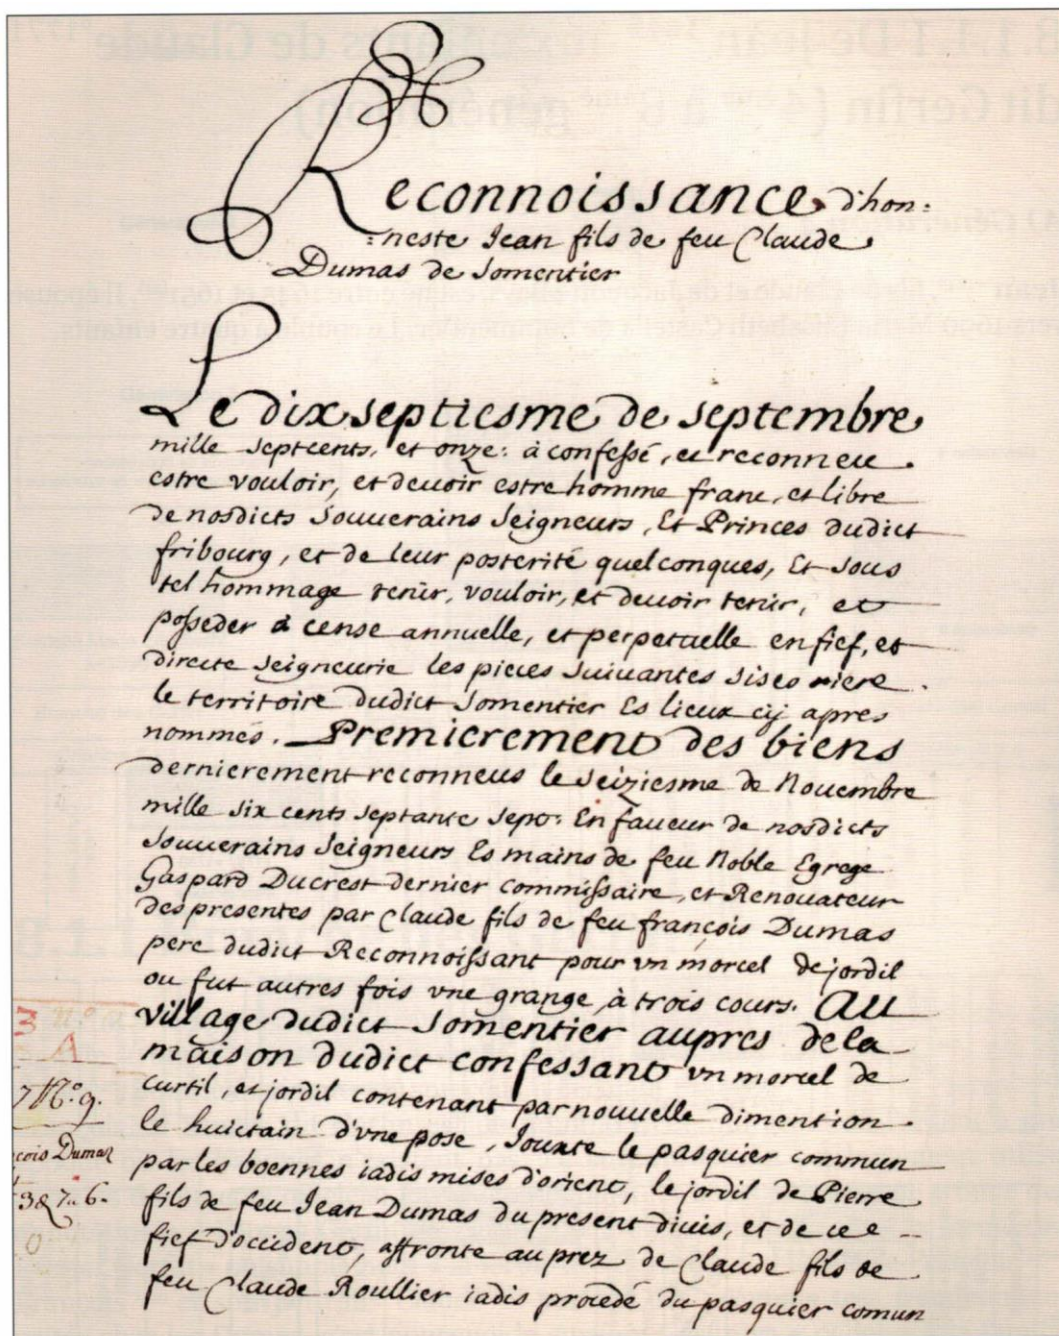 Reconnoissance d'hon:
:neste Jean fils de feu Claude
Dumas de Somentier
Le dix septiesme de septembre
mille septcents, et onze: à confessé, et reconneu
estre vouloir, et devoir estre homme franc, et libre
de nosdicts Souuerains Seigneurs, Et Princes dudict
fribourg, et de leur posterité quelconques, Et sous
tel hommage tenir, vouloir, et deuoir tenir, et
posseder à cense annuelle, et perpetuelle en fief, et
directe seigneurie les pieces suiuantes sises riere
le territoire dudict Somentier Es lieux cy apres
nommés. Premierement des biens
dernierement reconneus le seiziesme de Nouembre
mille six cents septante sept: En faueur de nosdicts
Souuerains Seigneurs Es mains de feu Noble Egrege
Gaspard Ducrest dernier commissaire, et Renouateur
des presentes par Claude fils de feu françois Dumas
pere dudict Reconnoissant pour vn morcel de jordil
ou fut autres fois vne grange, à trois cours. Au
village dudict Somentier aupres de la
maison dudict confessant vn morcel de
curtil, et jordil contenant par nouuelle dimention
le huictain d'vne pose, Jouxte le pasquier commun
par les boennes iadis mises d'orient, le jordil de Pierre
fils de feu Jean Dumas du present diuis, et de ce
fief d'occident, affronte au prez de Claude fils de
feu Claude Roullier iadis procedé du pasquier comun
3 n.º
A
7 Nº. 9.
çois Dumas
3&7.. 6.